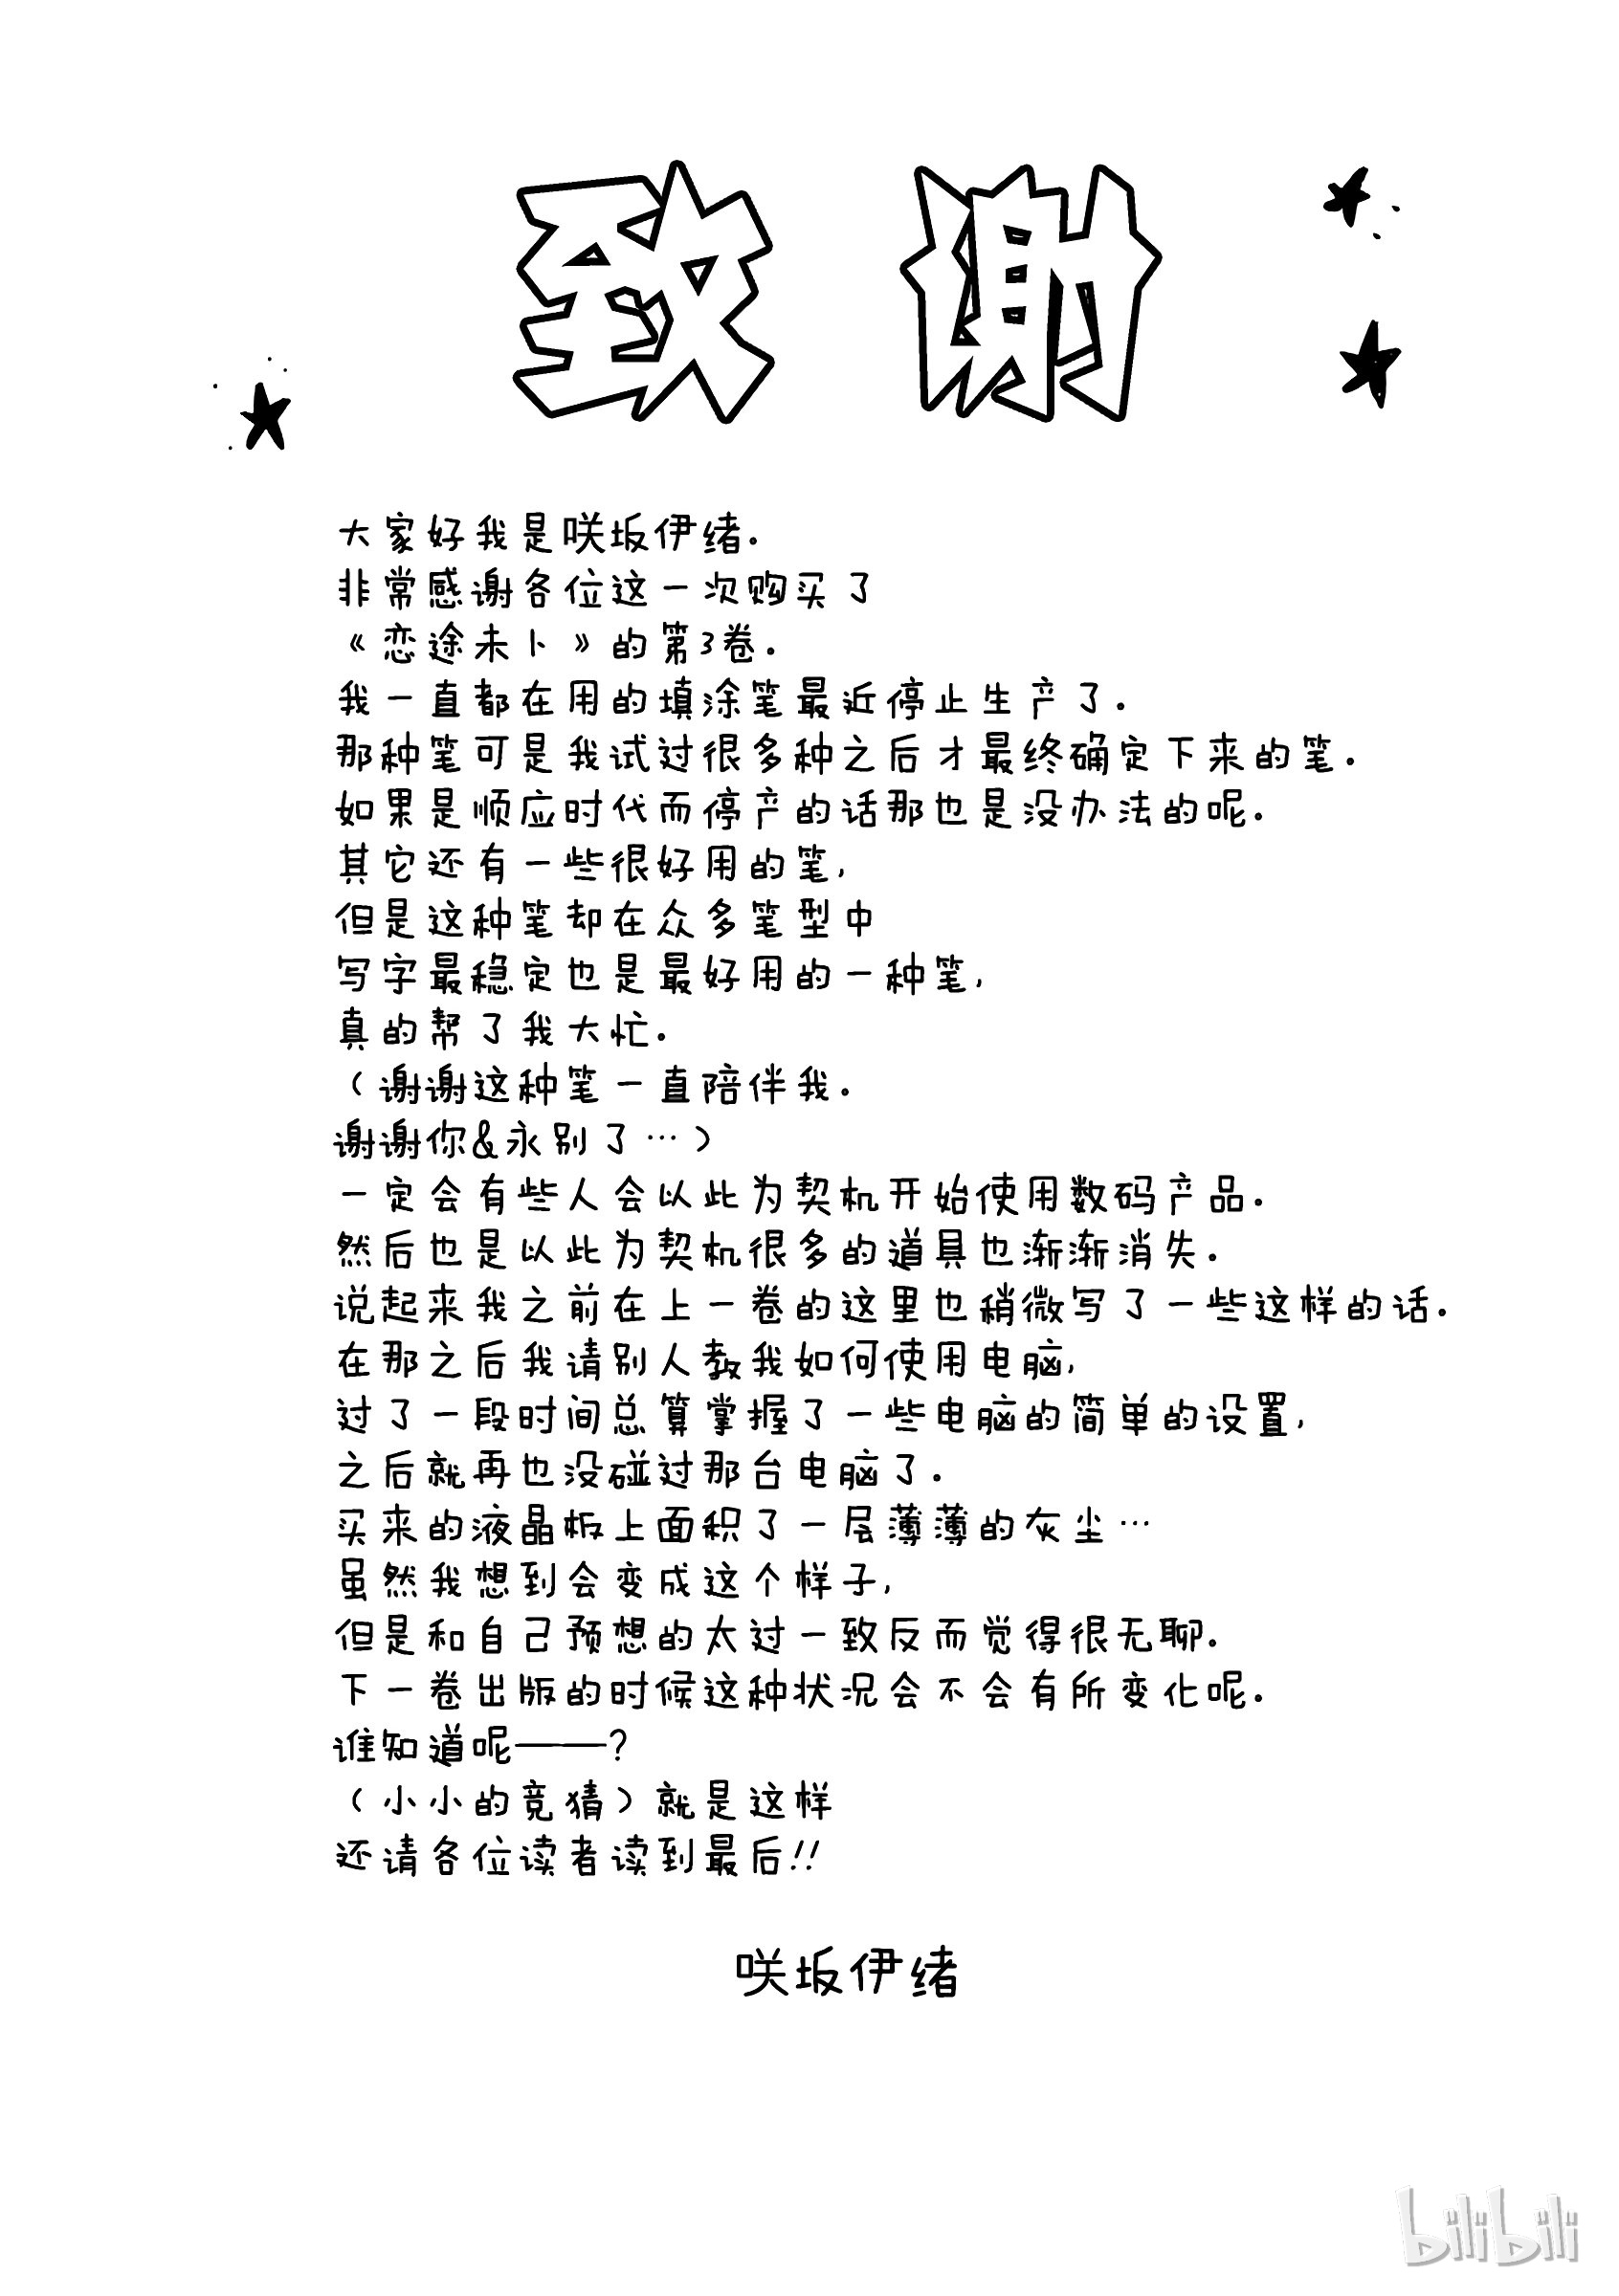 致谢
大家好我是咲坂伊绪.
非常感谢各位这一次购买了
《恋途未卜》的第3卷.
我一直都在用的填涂笔最近停止生产了.
那种笔可是我试过很多种之后才最终确定下来的笔.
如果是顺应时代而停产的话那也是没办法的呢.
其它还有一些很好用的笔,
但是这种笔却在众多笔型中
写字最稳定也是最好用的一种笔,
真的帮了我大忙.
(谢谢这种笔一直陪伴我.
谢谢你&永别了…)
一定会有些人会以此为契机开始使用数码产品.
然后也是以此为契机很多的道具也渐渐消失.
说起来我之前在上一卷的这里也稍微写了一些这样的话.
在那之后我请别人教我如何使用电脑,
过了一段时间总算掌握了一些电脑的简单的设置,
之后就再也没碰过那台电脑了.
买来的液晶板上面积了一层薄薄的灰尘…
虽然我想到会变成这个样子,
但是和自己预想的太过一致反而觉得很无聊.
下一卷出版的时候这种状况会不会有所变化呢.
谁知道呢——?
(小小的竞猜)就是这样
还请各位读者读到最后!!
咲坂伊绪
bilibili